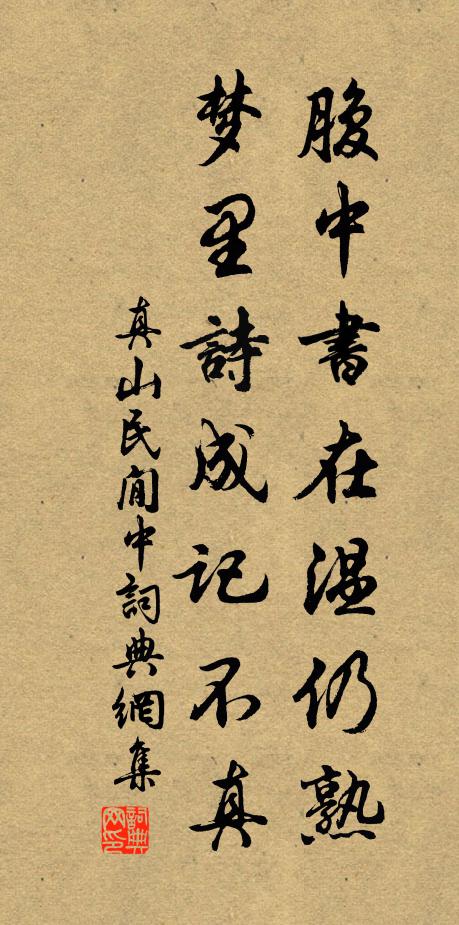 腹中書在温仍熟
梦里詩成记不真
真山民閒中詞典網集
詞典网印